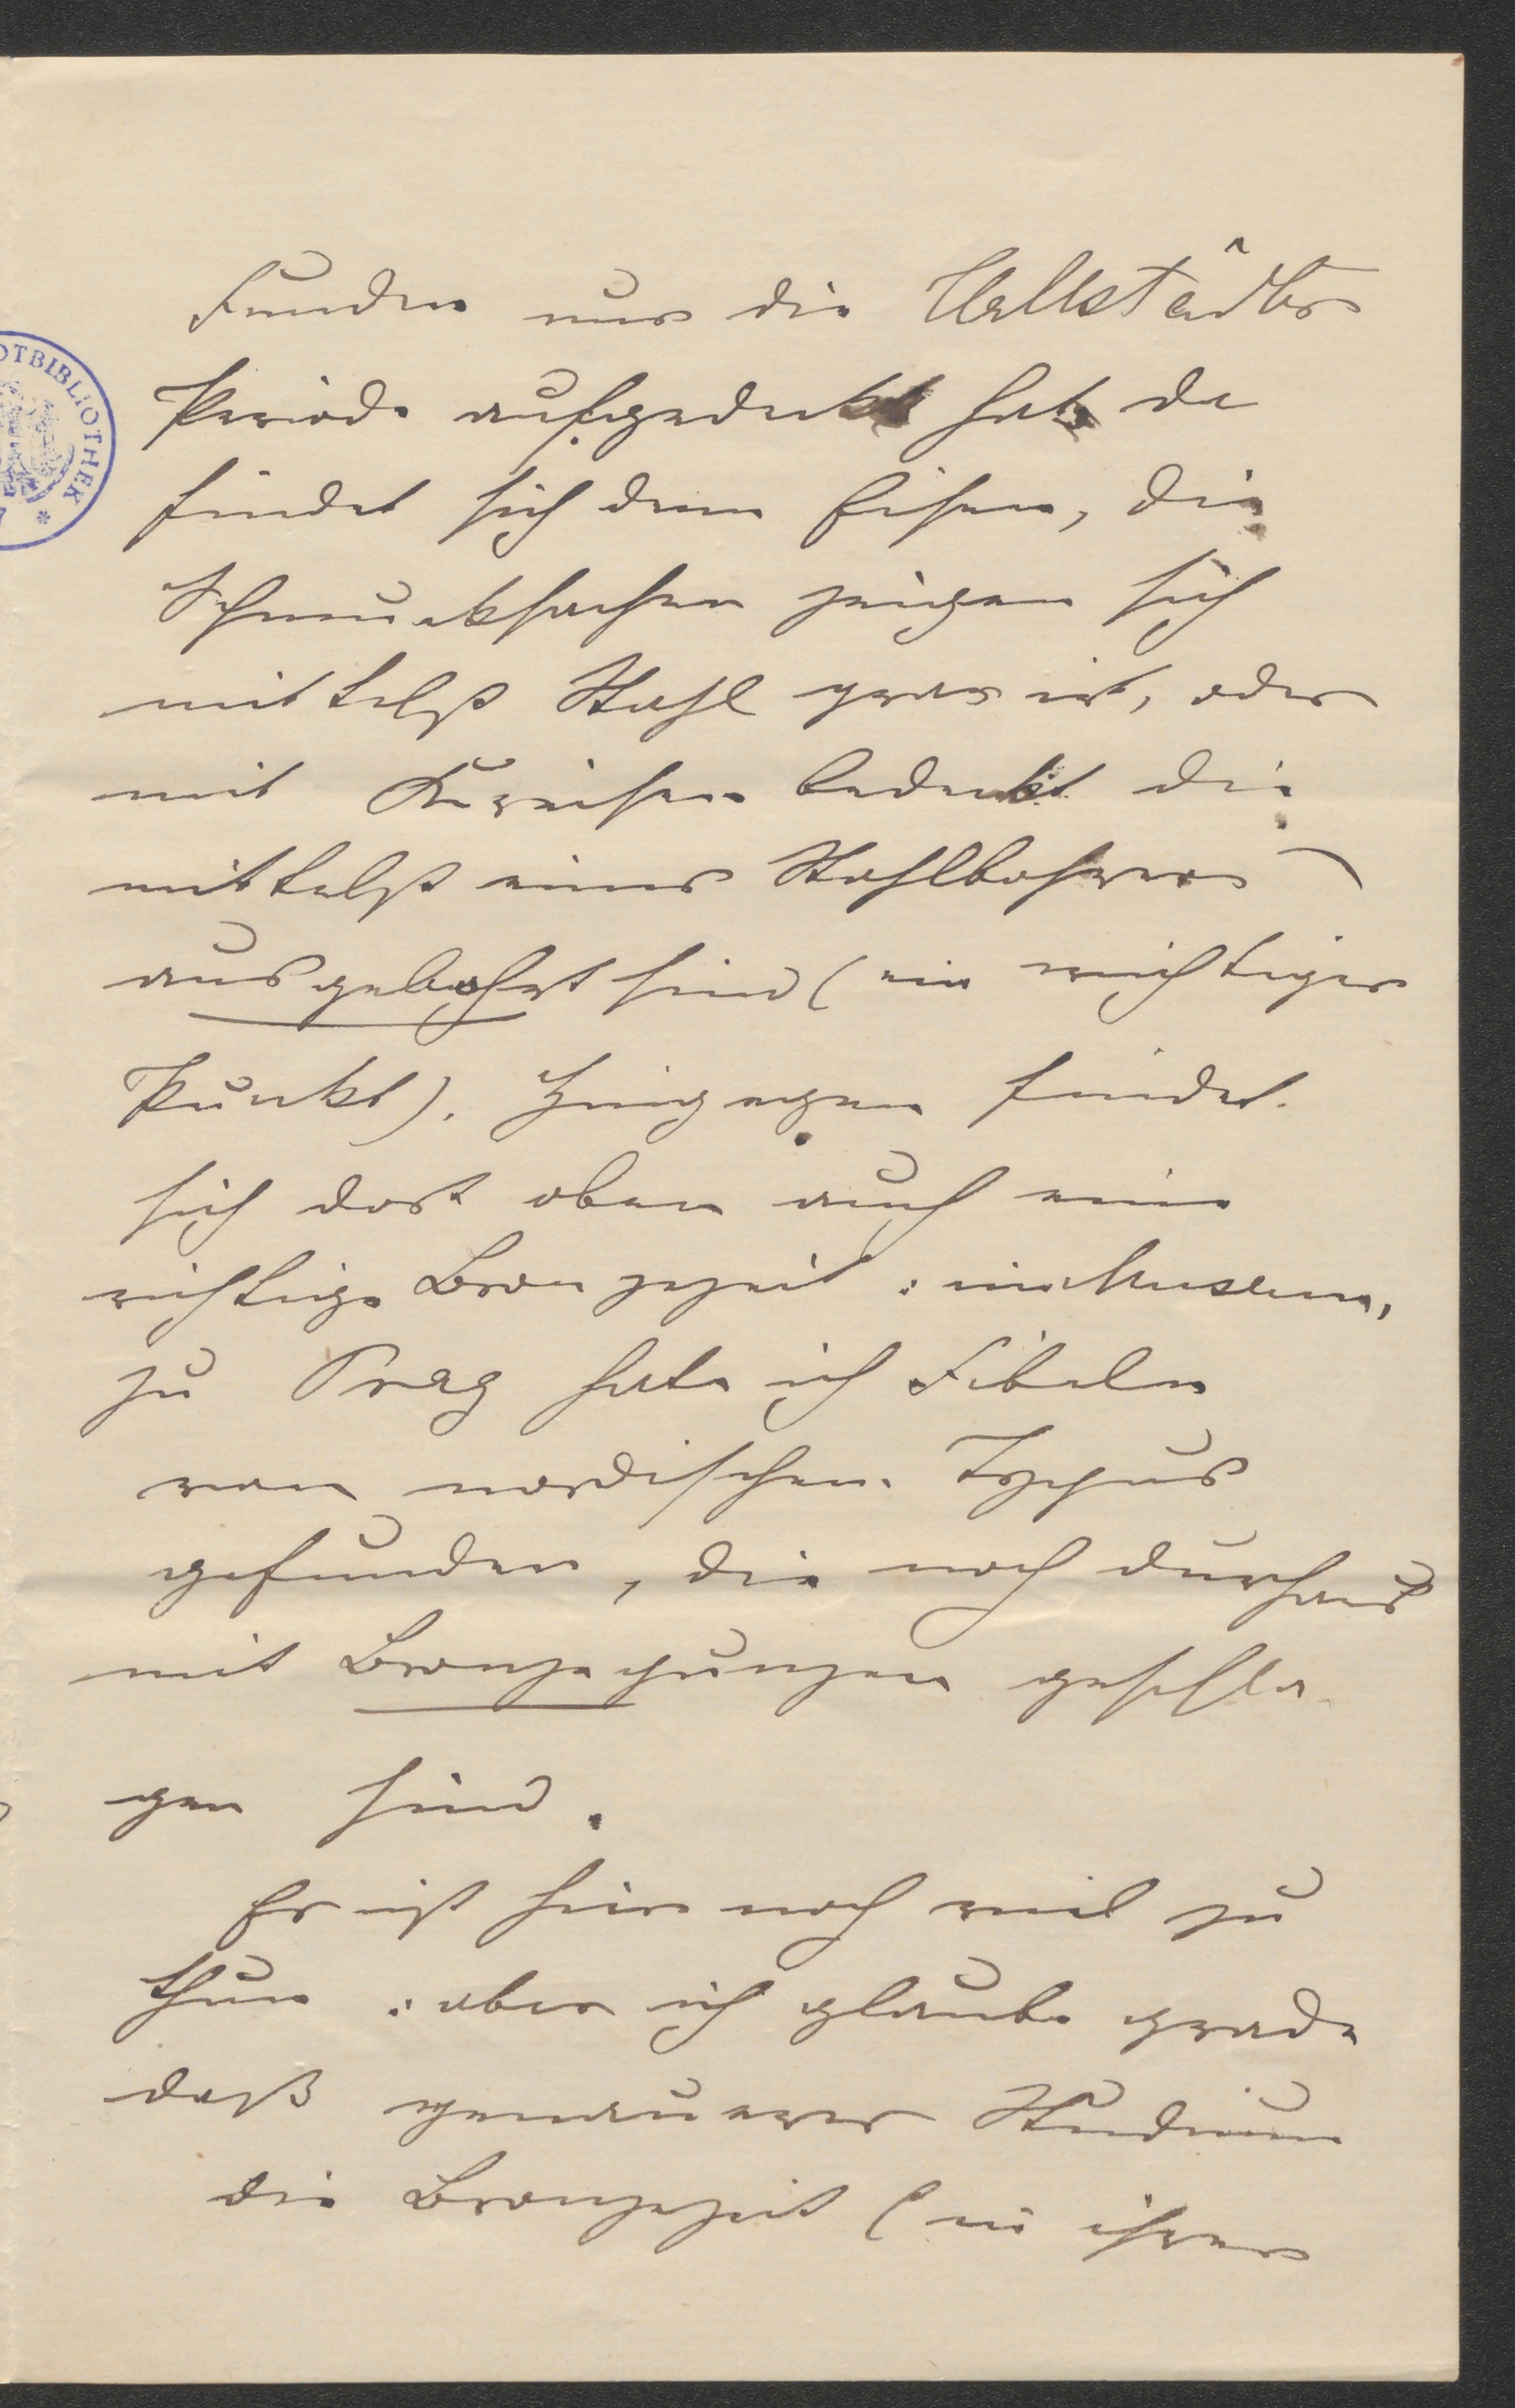 Funden nur die Hallstädter
Periode aufgedeckt hat, da
findet sich denn Eisen, die
Schmucksachen zeigen sich
mittelst Stahl graviert, oder
mit Kreisen bedeckt die
mittelst eines Stahlbohrers
ausgebohrt sind (ein wichtiger
Punkt). Hingegen findet
sich dort oben auch eine
richtige Bronzezeit: im Museum,
zu Prag habe ich Fibeln
von nordischem Typus
gefunden, die noch durchaus
mit Bronzepunzen geschla-
gen sind.
Es ist hier noch viel zu
thun: aber ich glaube grade
daß genaueres Studium
die Bronzezeit (in ihrer
OTBIBLIOTHEK *